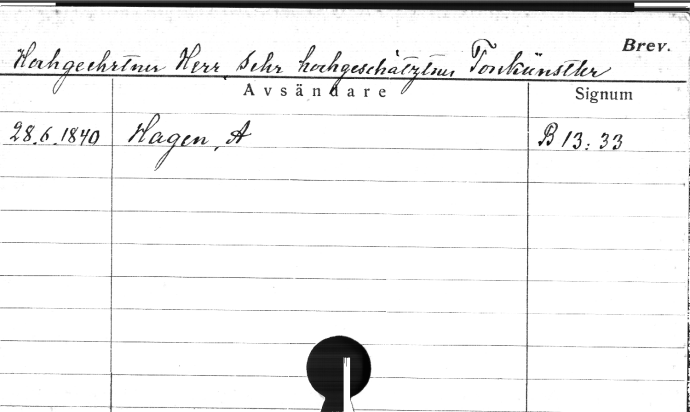 Brev.
Hochgeehrtner Herr, Sehr hochgeschätztner Tonkünstler
Avsändare Signum
28.6.1840 Hagen, A B 13:33